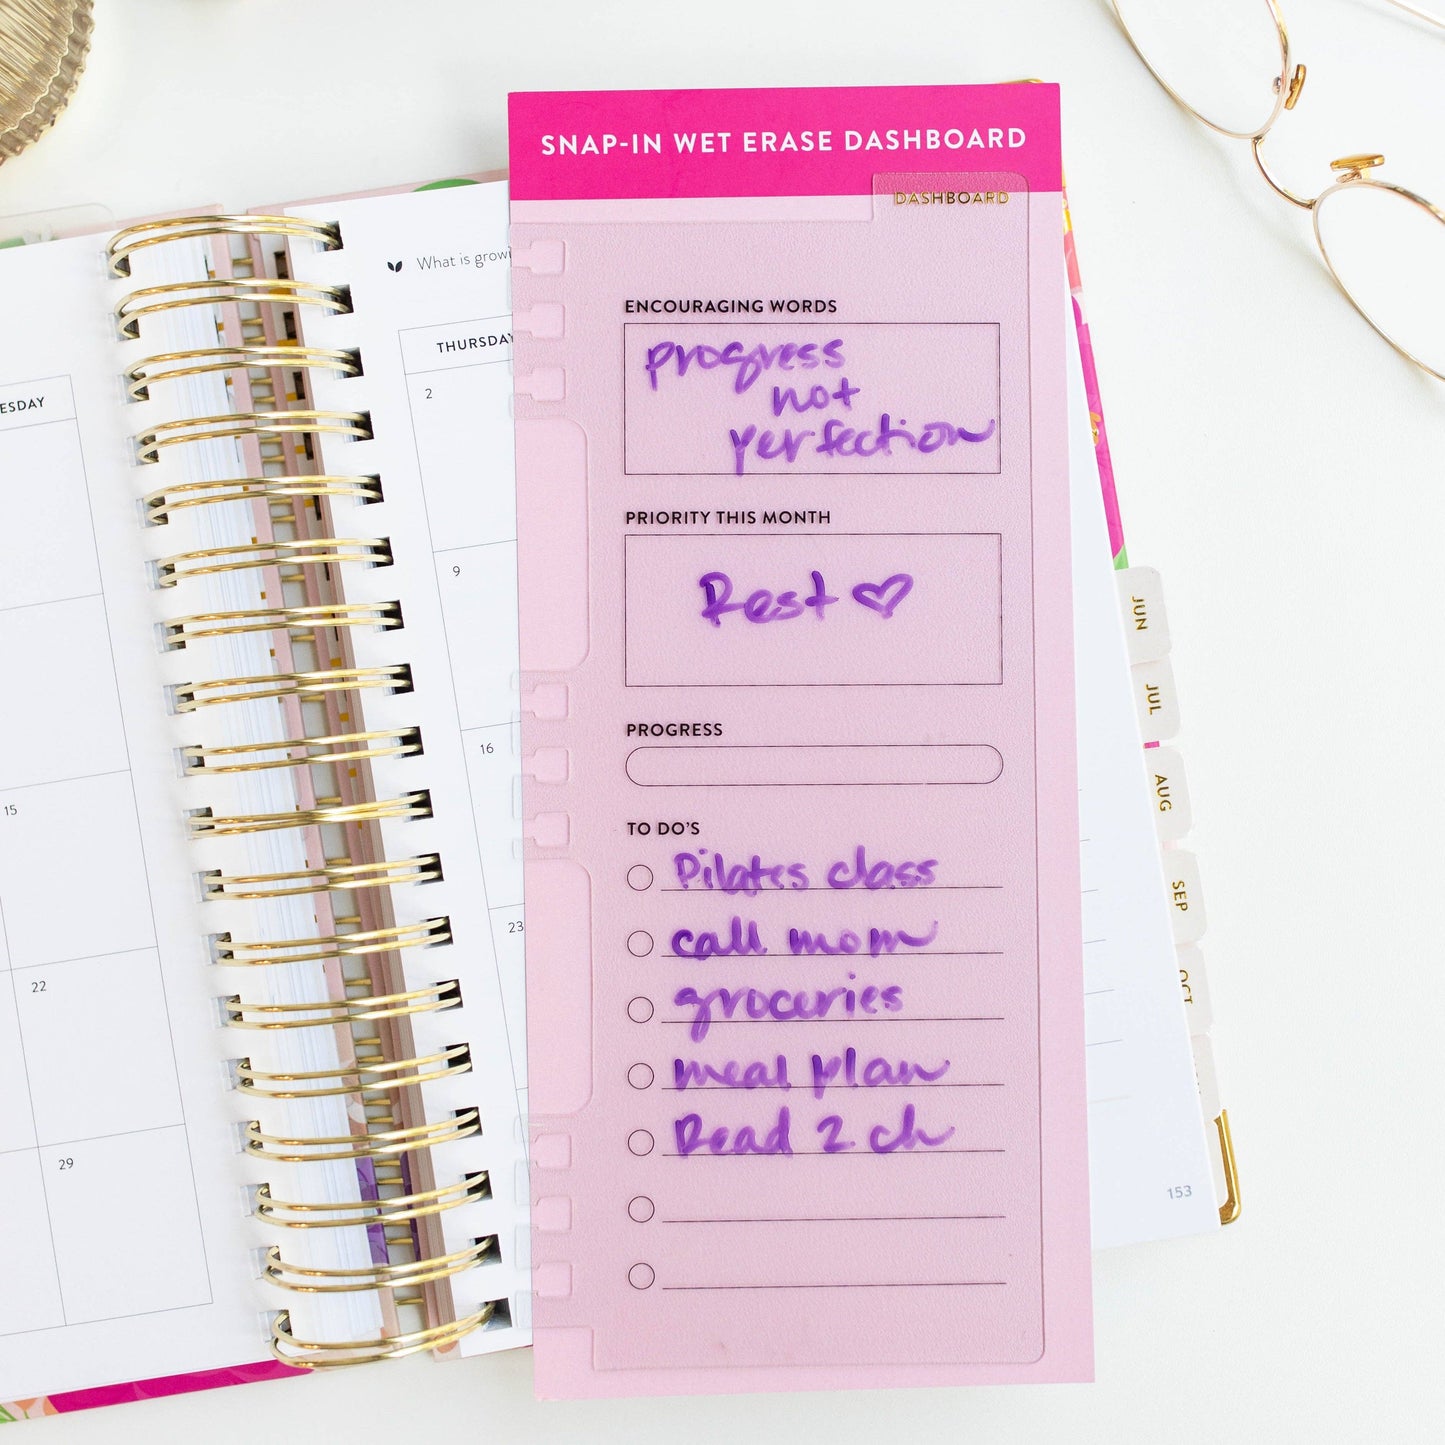 SNAP-IN WET ERASE DASHBOARD
DASHBOARD
ENCOURAGING WORDS
progress
not
perfection
PRIORITY THIS MONTH
Rest
PROGRESS
TO DO'S
Pilates class
call mom
groceries
meal plan
Read 2 ch
What is
THURSDAY
2
9
16
23
ESDAY
15
22
29
JUN
JUL
AUG
SEP
OCT
153